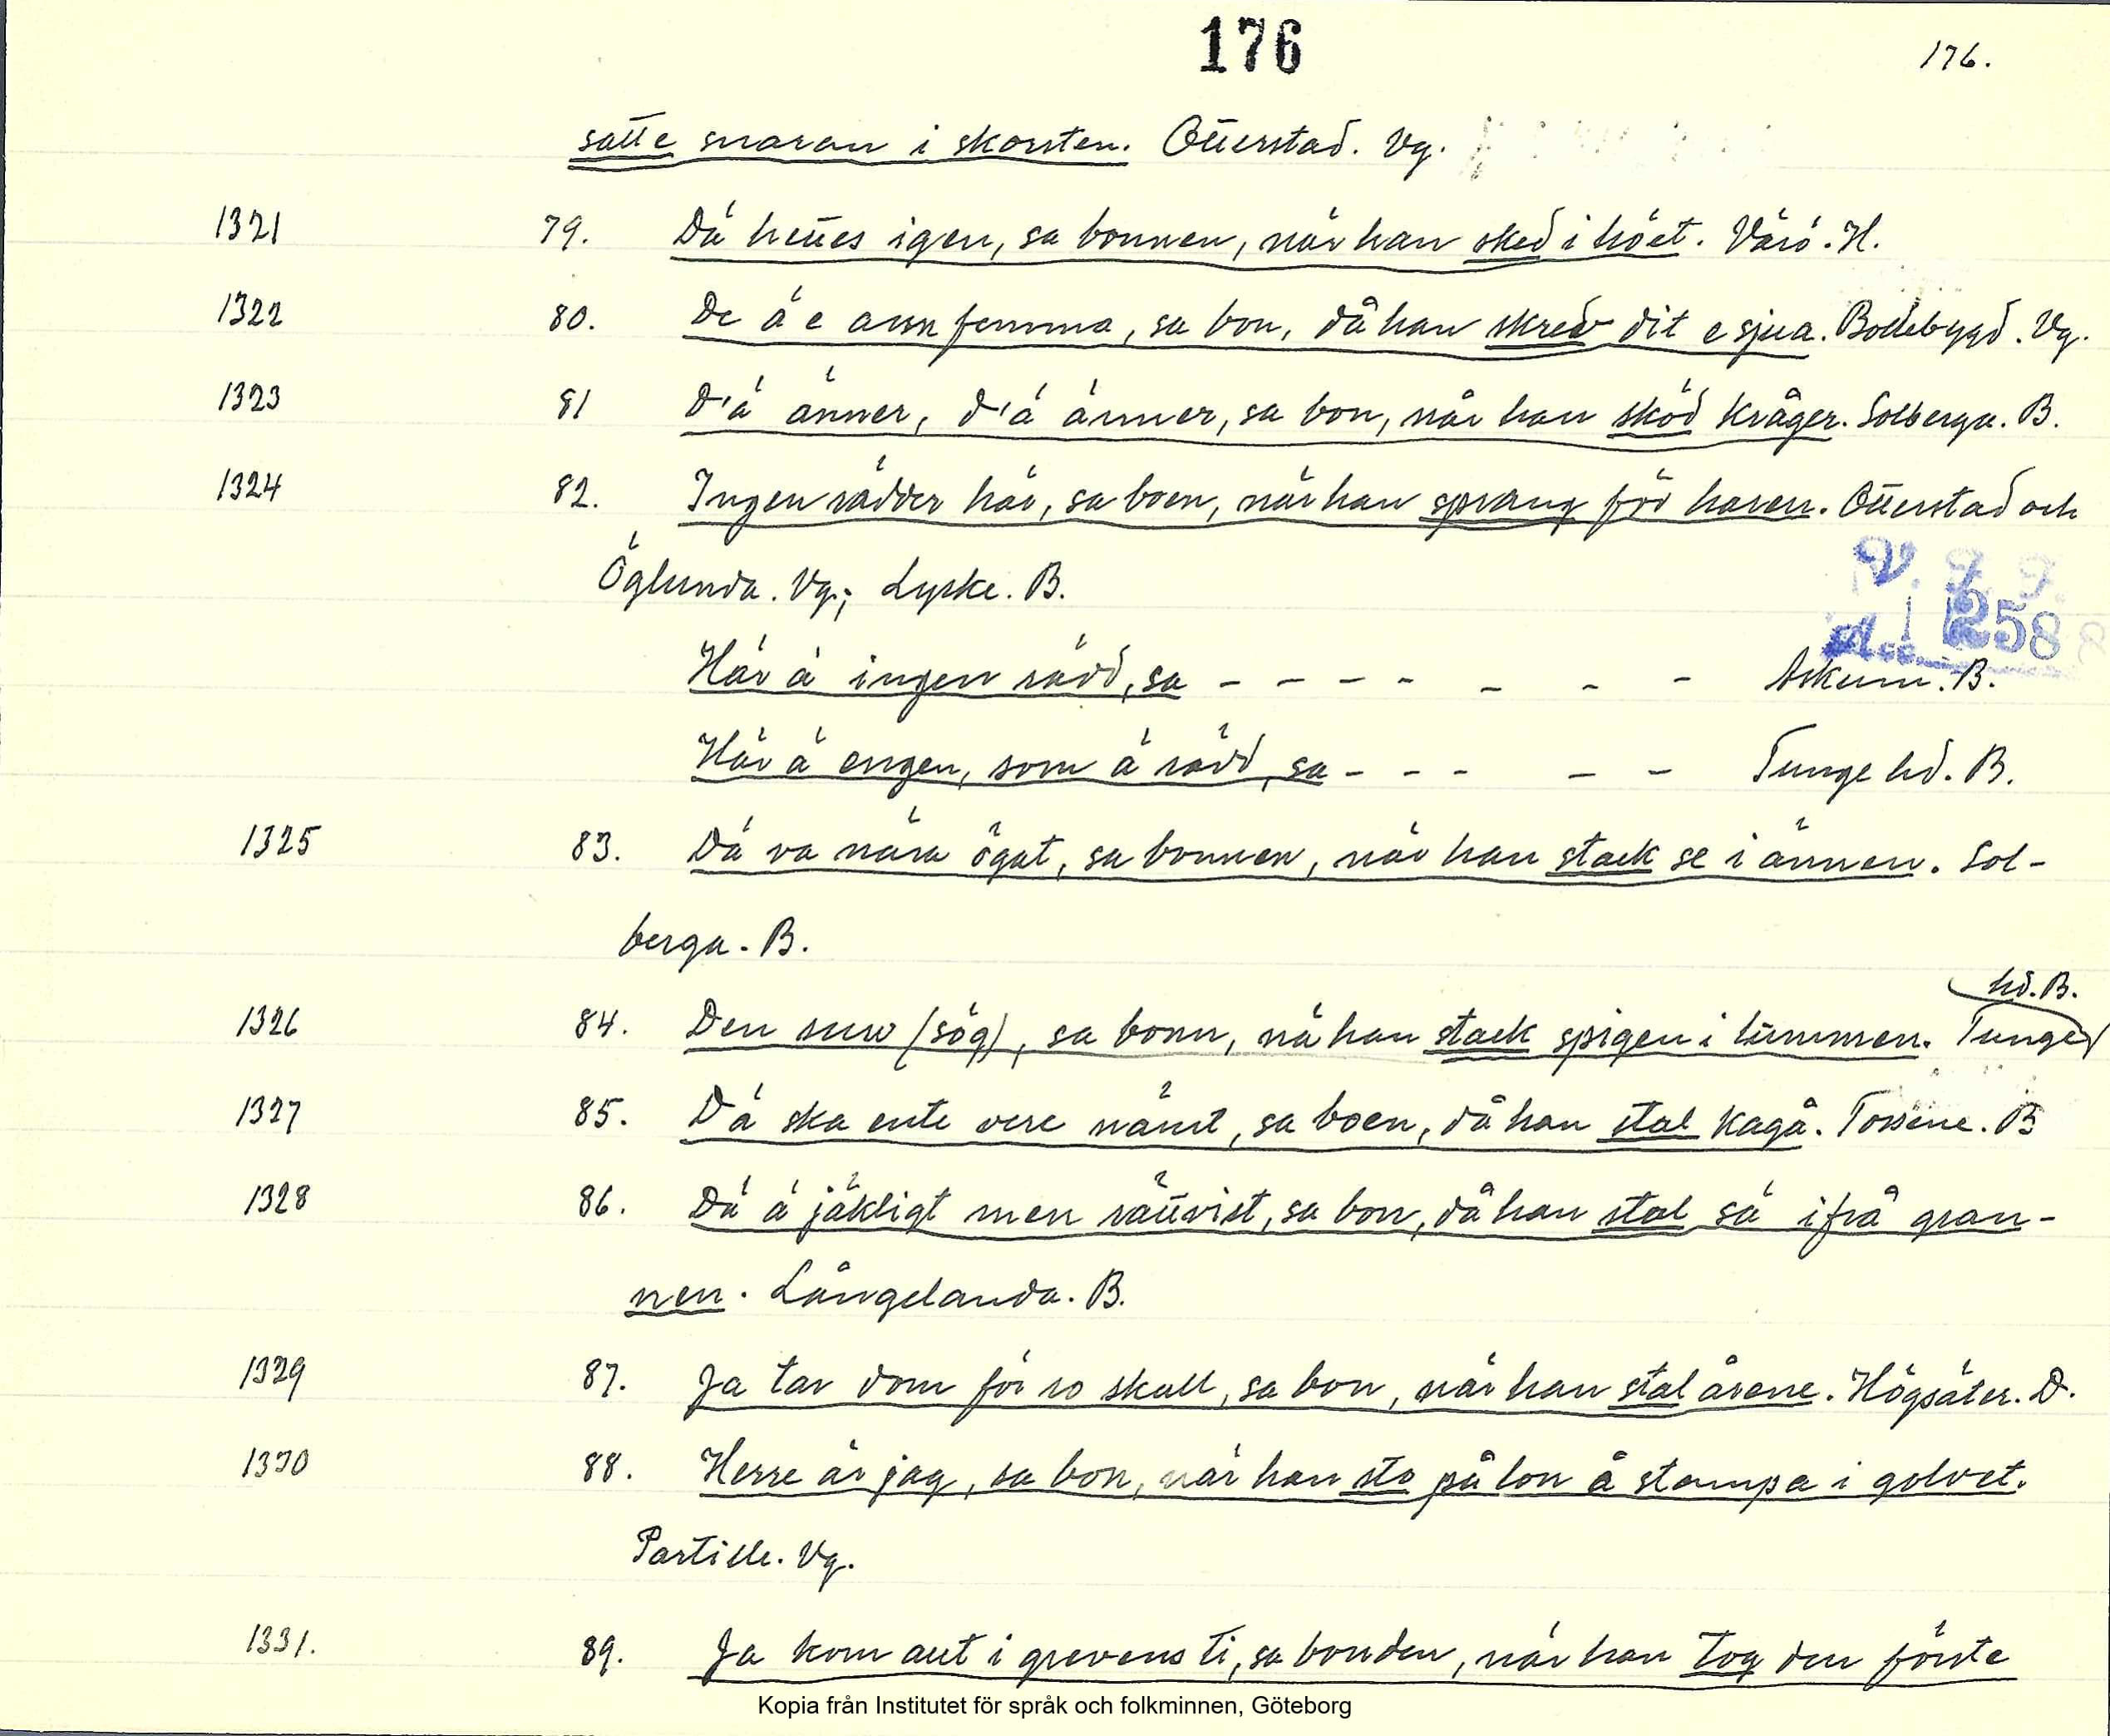 176
176.
satte snaran i skorsten. Otterstad. Vg.
1321 79. Dä hettes igen, sa bonnen, när han sked i höet. Värö. H.
1322 80. De ä e ann femma, sa bon, då han skrev dit e sjua. Bollebygd. Vg.
1323 81 D'ä änner, d'ä änner, sa bon, når han sköd kråger. Solberga. B.
1324 82. Ingen rädder här, sa boen, när han sprang för haren. Otterstad och
Öglunda. Vg.; Lyske. B.
V. F. F.
Acc. 1258
Här ä ingen rädd, sa - - - - - - - Askum. B.
Här ä engen, som ä rädd, sa - - - - - Tunge hd. B.
1325 83. Dä va nära ögat, sa bonnen, när han stack se i ännen. Sol-
berga. B.
hd. B.
1326 84. Den suw (sög), sa bonn, nä han stack spigen i tummen. Tunge
1327 85. Dä ska ente vere nämt, sa boen, då han stal kagå. Tossene. B
1328 86. Dä ä jäkligt men rättvist, sa bon, då han stal sä ifrå gran-
nen. Långelanda. B.
1329 87. Ja tar dom för ro skull, sa bon, når han stal årene. Högsäter. D.
1330 88. Herre är jag, sa bon, när han sto på lon å stampa i golvet.
Partille. Vg.
1331. 89. Ja kom aut i grevens ti, sa bonden, når han tog den förste
Kopia från Institutet för språk och folkminnen, Göteborg